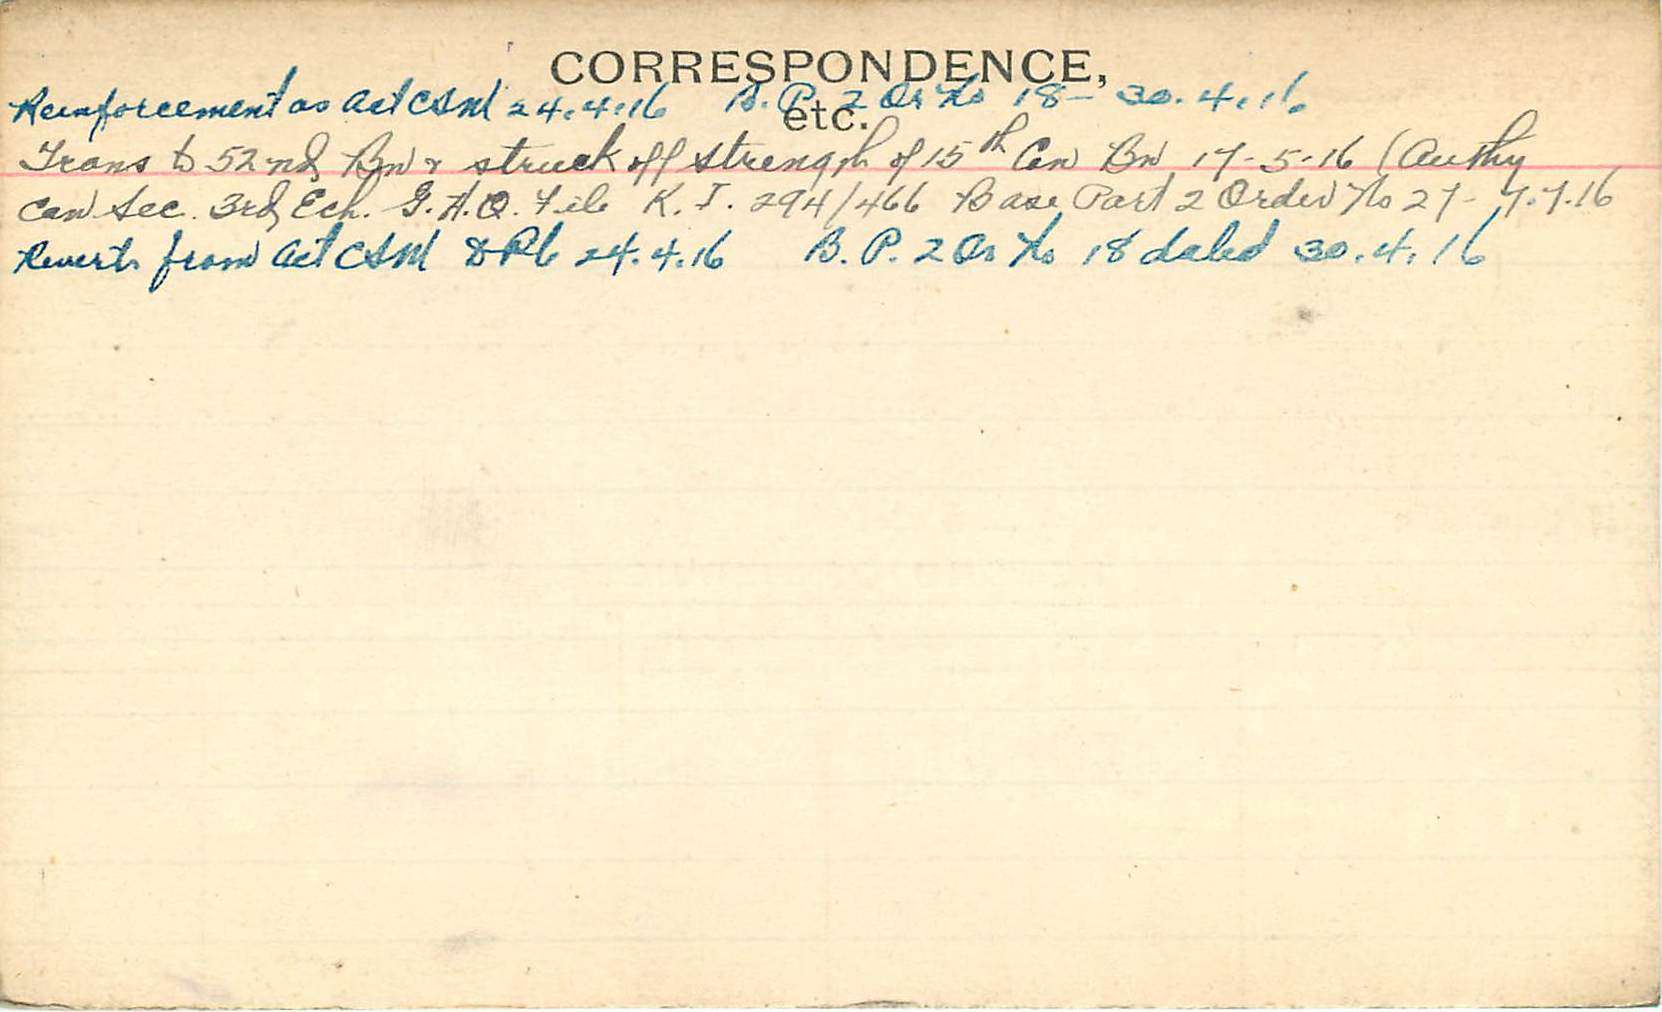 CORRESPONDENCE,
etc.
Reinforcement as Act CSM 24.4.16 B. P. 2 Or No 18 - 30.4.16
Trans to 52nd Bn & struck off strength of 15th Can Bn 17-5-16 (Authy
Can Sec. 3rd Ech. G.H.Q. File K. I. 294/466 Base Part 2 Order No 27 - 7.7.16
Reverts from Act CSM to Pte 24.4.16 B. P. 2 Or No 18 dated 30.4.16